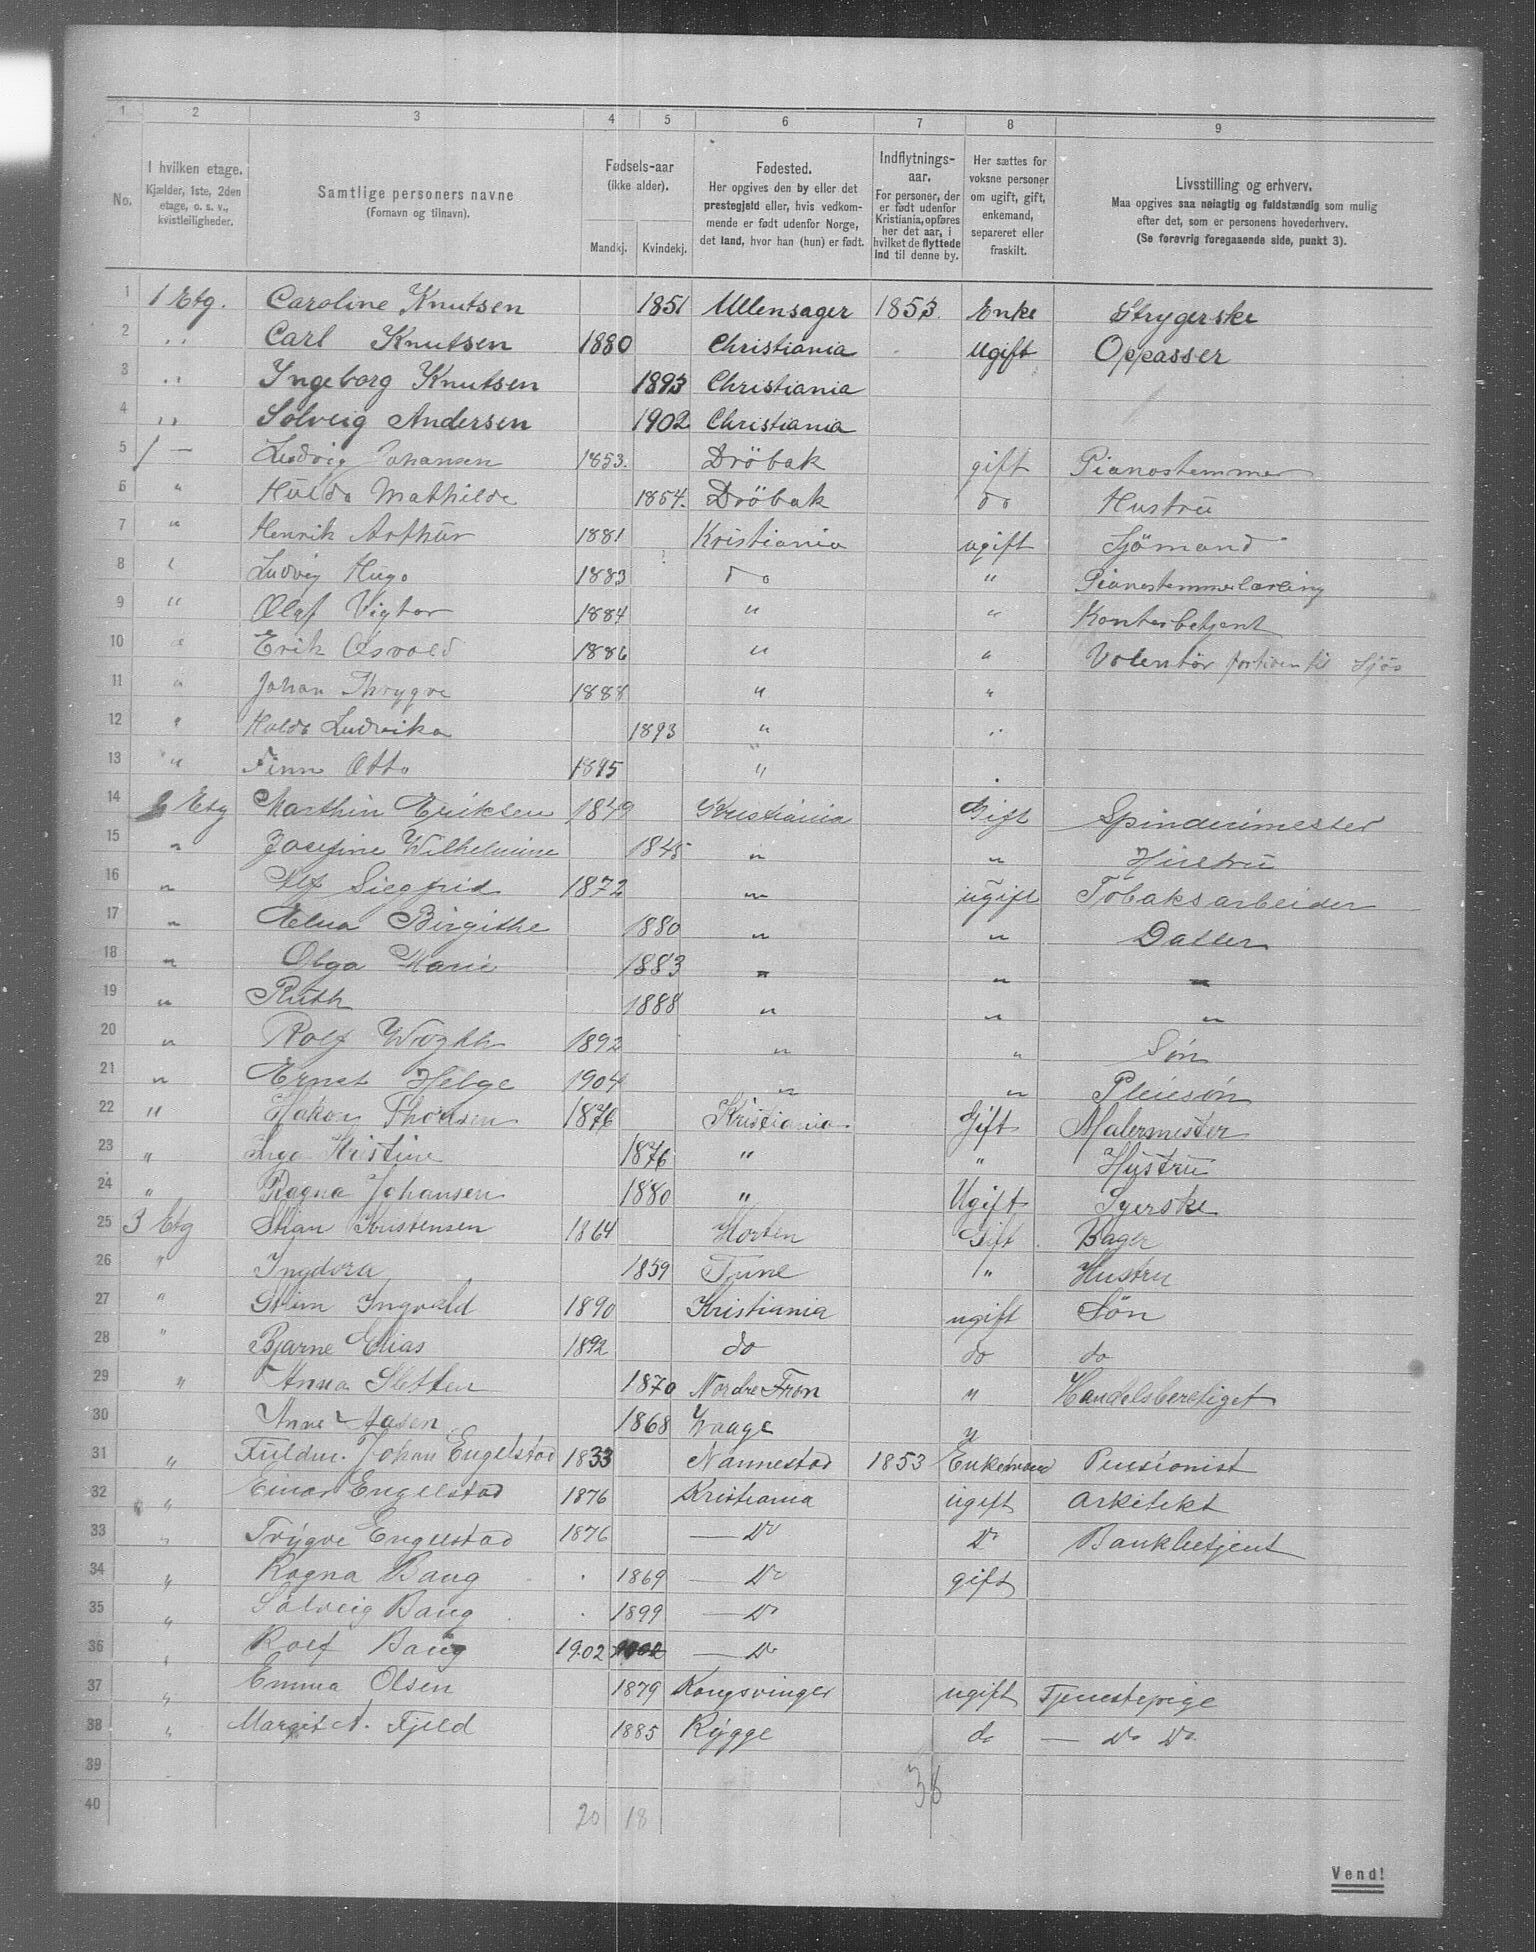 1 2 3 4 5 6 7 8 9
No.
I hvilken etage.
Kjælder, 1ste, 2den
etage, o. s. v.,
kvistleiligheder.
Samtlige personers navne
(Fornavn og tilnavn).
Fødsels-aar
(ikke alder).
Mandkj. Kvindekj.
Fødested.
Her opgives den by eller det
prestegjeld eller, hvis vedkom-
mende er født udenfor Norge,
det land, hvor han (hun) er født.
Indflytnings-
aar.
For personer, der
er født udenfor
Kristiania, opføres
her det aar, i
hvilket de flyttede
ind til denne by.
Her sættes for
voksne personer
om ugift, gift,
enkemand,
separeret eller
fraskilt.
Livsstilling og erhverv.
Maa opgives saa nøiagtig og fuldstændig som mulig
efter det, som er personens hovederhverv.
(Se forøvrig foregaaende side, punkt 3).
1 1 Etg. Caroline Knutsen 1851 Ullensager 1853. Enke Strygerske
2 " Carl Knutsen 1880 Christiania Ugift Oppasser
3 " Ingeborg Knutsen 1893 Christiania
4 " Solveig Andersen 1902 Christiania
5 / — Ludvig Johansen 1853. Dröbak gift Pianostemmer
6 " Hulda Mathilde 1854. Dröbak do Hustru
7 " Henrik Arthur 1881 Kristiania ugift Sjömand
8 " Ludvig Hugo 1883 do " Pianostemmerlærling
9 " Olaf Vigtor 1884 " " Kontorbetjent
10 " Erik Osvald 1886 " " Volentör fortiden til Sjös
11 " Johan Thrygve 1888 " "
12 " Hulda Ludvika 1893 " "
13 " Finn Otto 1895 "
14 Etg Marthin Eriksen 1849 Kristiania Gift Spinderimester
15 " Josefine Wilhelmine 1845 " " Hustru
16 " Alf Siegfrid 1872 " ugift Tobaksarbeider
17 " Birgithe 1880 " " Datter
18 " Olga Marie 1883 " " "
19 " Ruth 1888 " " "
20 " Rolf 1892 " " Søn
21 " Ernst Helge 1904 " " Pleiesøn
22 " Hakon Thorsen 1876 Kristiania Gift Malermester
23 " Inga Kristine 1876 " " Hustru
24 " Ragna Johansen 1880 " Ugift Syerske
25 3 Etg Stian Kristensen 1864 Horten Gift Bager
26 " Ingdora 1859 Tune " Hustru
27 " Ingvald 1890 Kristiania ugift Søn
28 " Bjarne Elias 1892 do do do
29 " Anna Sletten 1870 Nordre Fron " Handelsberetiget
30 Anne Aasen 1868 Vaage "
31 " Fuldm. Johan Engelstad 1833 Nannestad 1853 Enkemand Pensionist
32 " Einar Engelstad 1876 Kristiania ugift Arkitekt
33 " Trygve Engelstad 1876 — Do Do Bankbetjent
34 " Ragna Baug 1869 — Do gift
35 " Solveig Baug 1899 — Do
36 " Rolf Baug 1902 — Do
37 " Emma Olsen 1879 Kongsvinger ugift Tjenestepige
38 " Margit A. Fjeld 1885 Rygge do — Do Do
39
40
20 18 38
Vend!